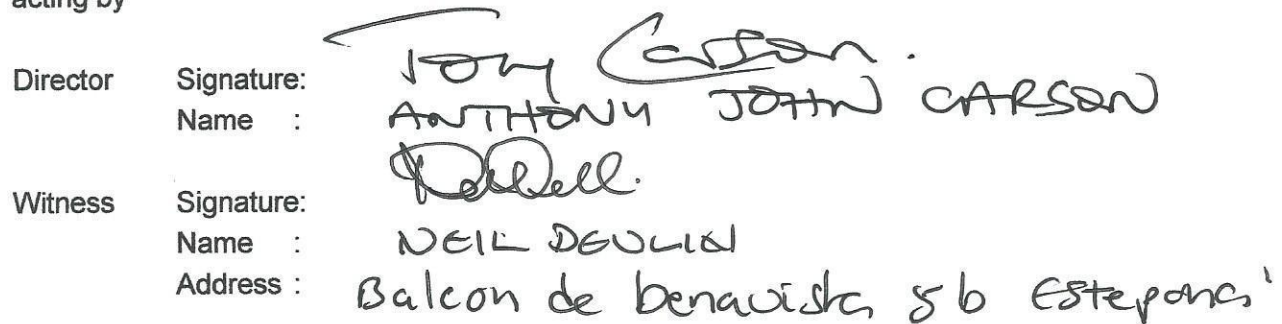 acting by
Director Signature: Tony Carson.
Name : ANTHONY JOHN CARSON
Witness Signature:
Name : NEIL DEVLIN
Address : Balcon de benavista 5b Estepona